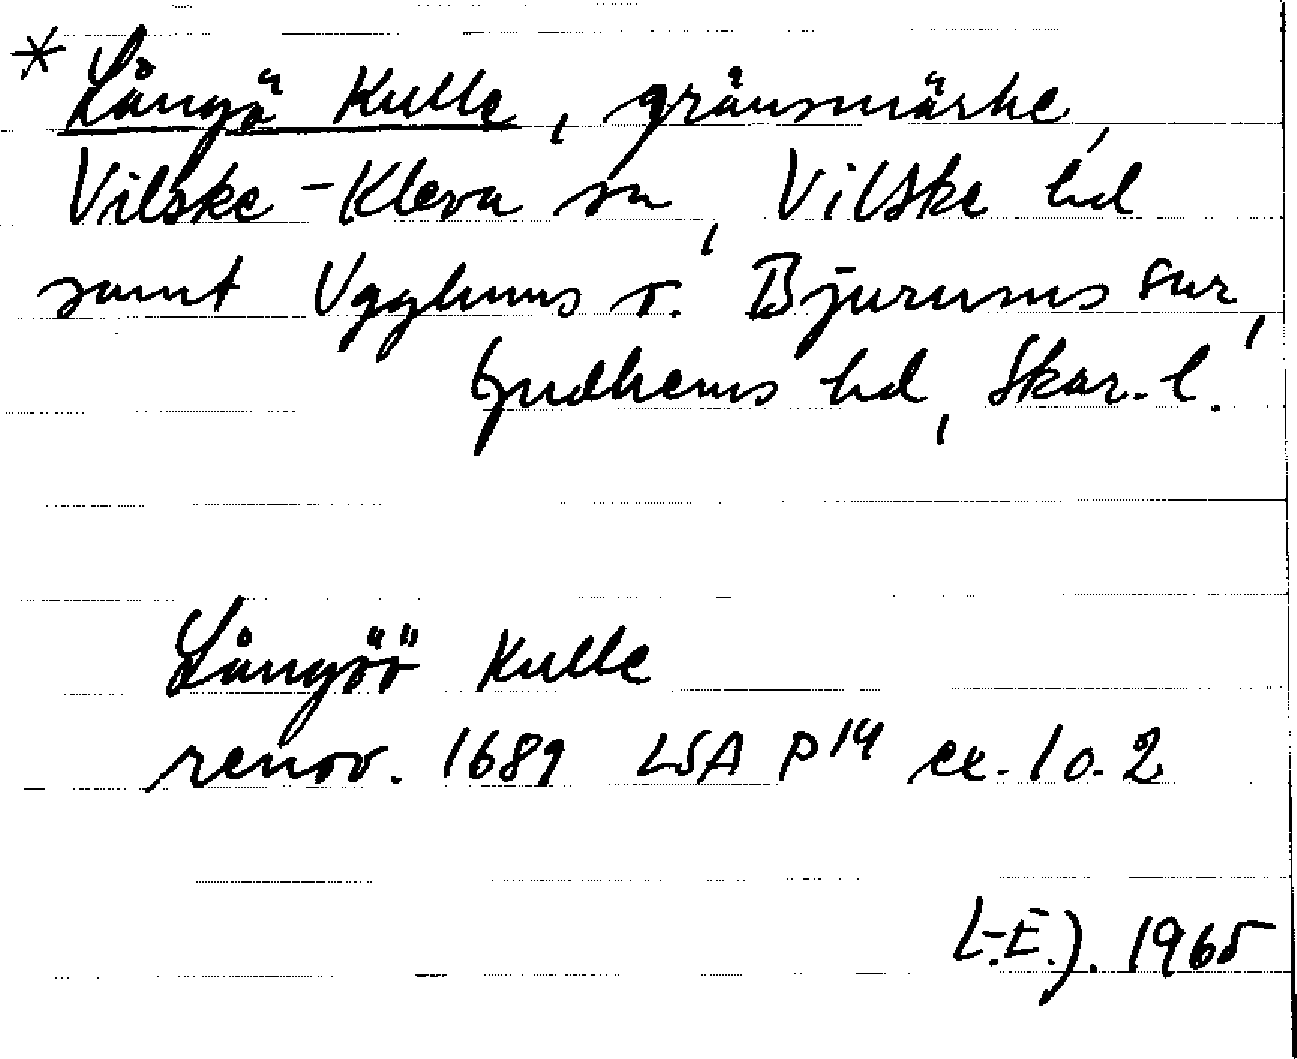 * Långö Kulle, gränsmärke,
Vilske-Kleva sn, Vilske hd
samt Ugglums o. Bjurums snr,
Gudhems hd, Skar. l.
Långöö Kulle
renov. 1689 LSA P 14 ex. 1 o. 2
L-E.J. 1965